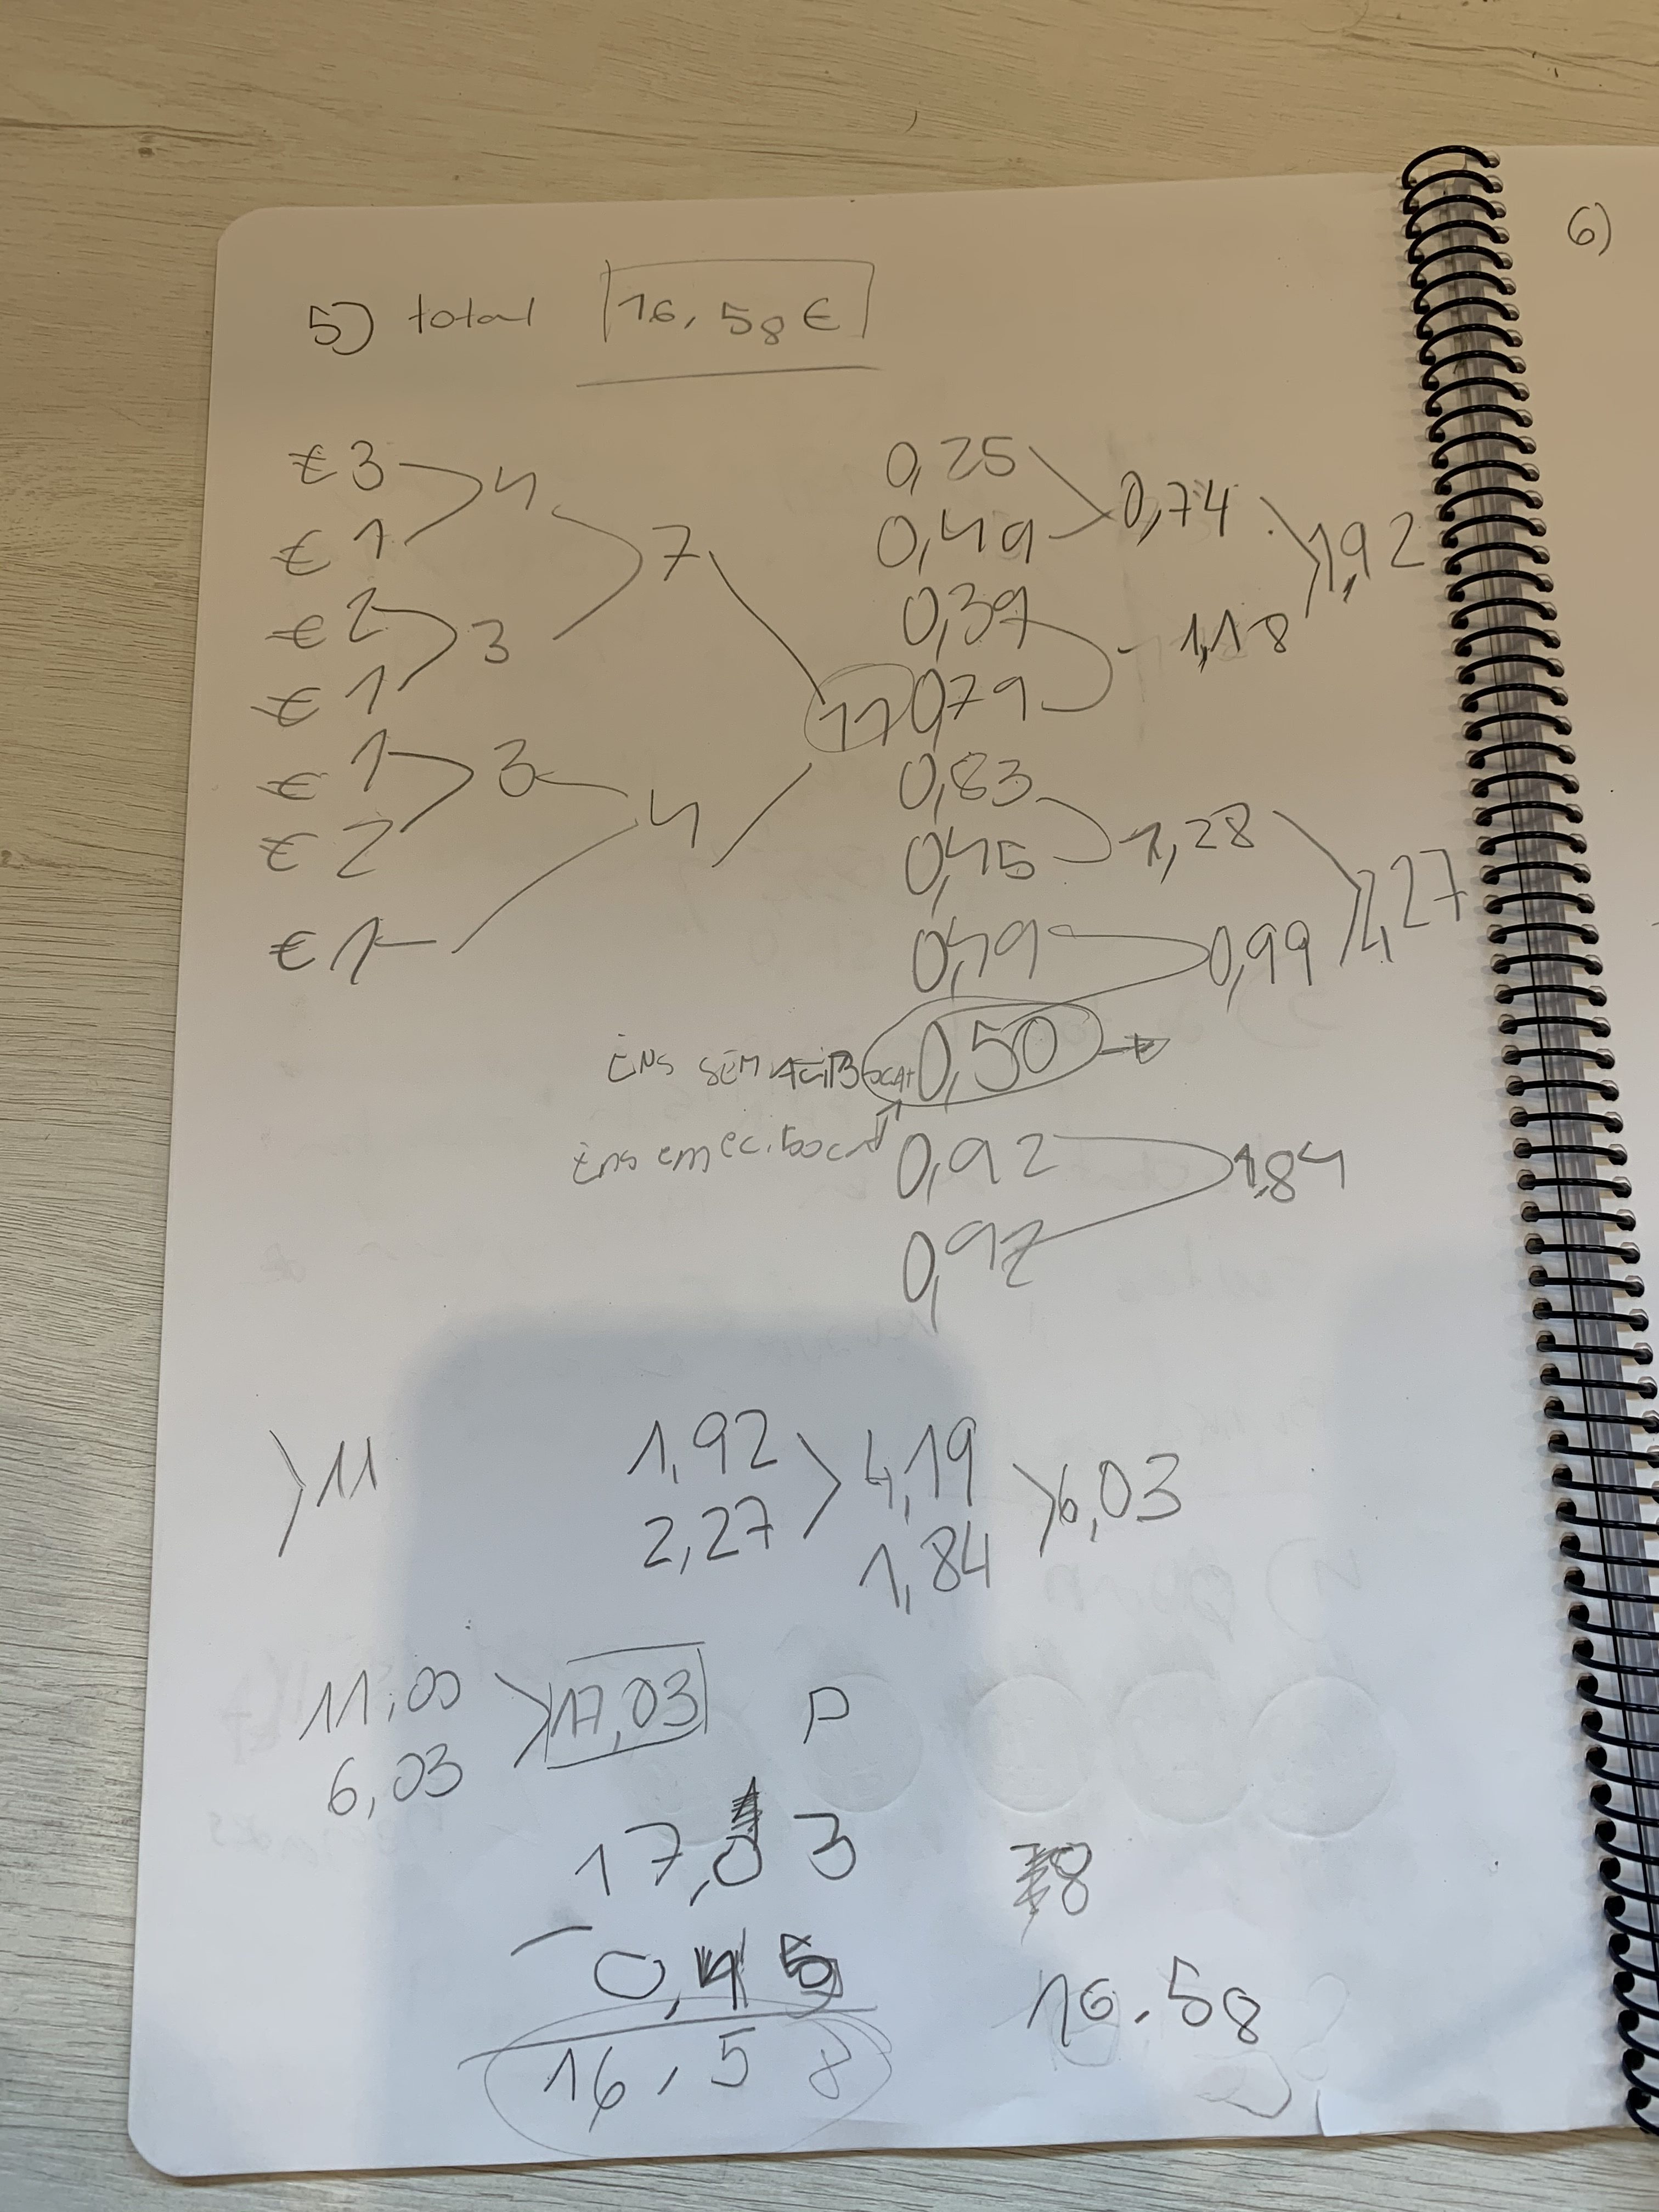 6)
5) total 16,58€
€ 3 4 0,25 0,74
€ 1 7 0,49 1,92
€ 2 3 0,39 1,18
€ 1 11 0,79
€ 1 3 0,83 1,28
€ 2 4 0,45 2,27
€ 1 0,49 0,99
ENS SEM 0,50
Ens em 0,92 1,84
0,92
11 1,92 4,19 6,03
2,27 1,84
11,00 17,03 P
6,03
17,03 8
- 0,45
16,58 16.58